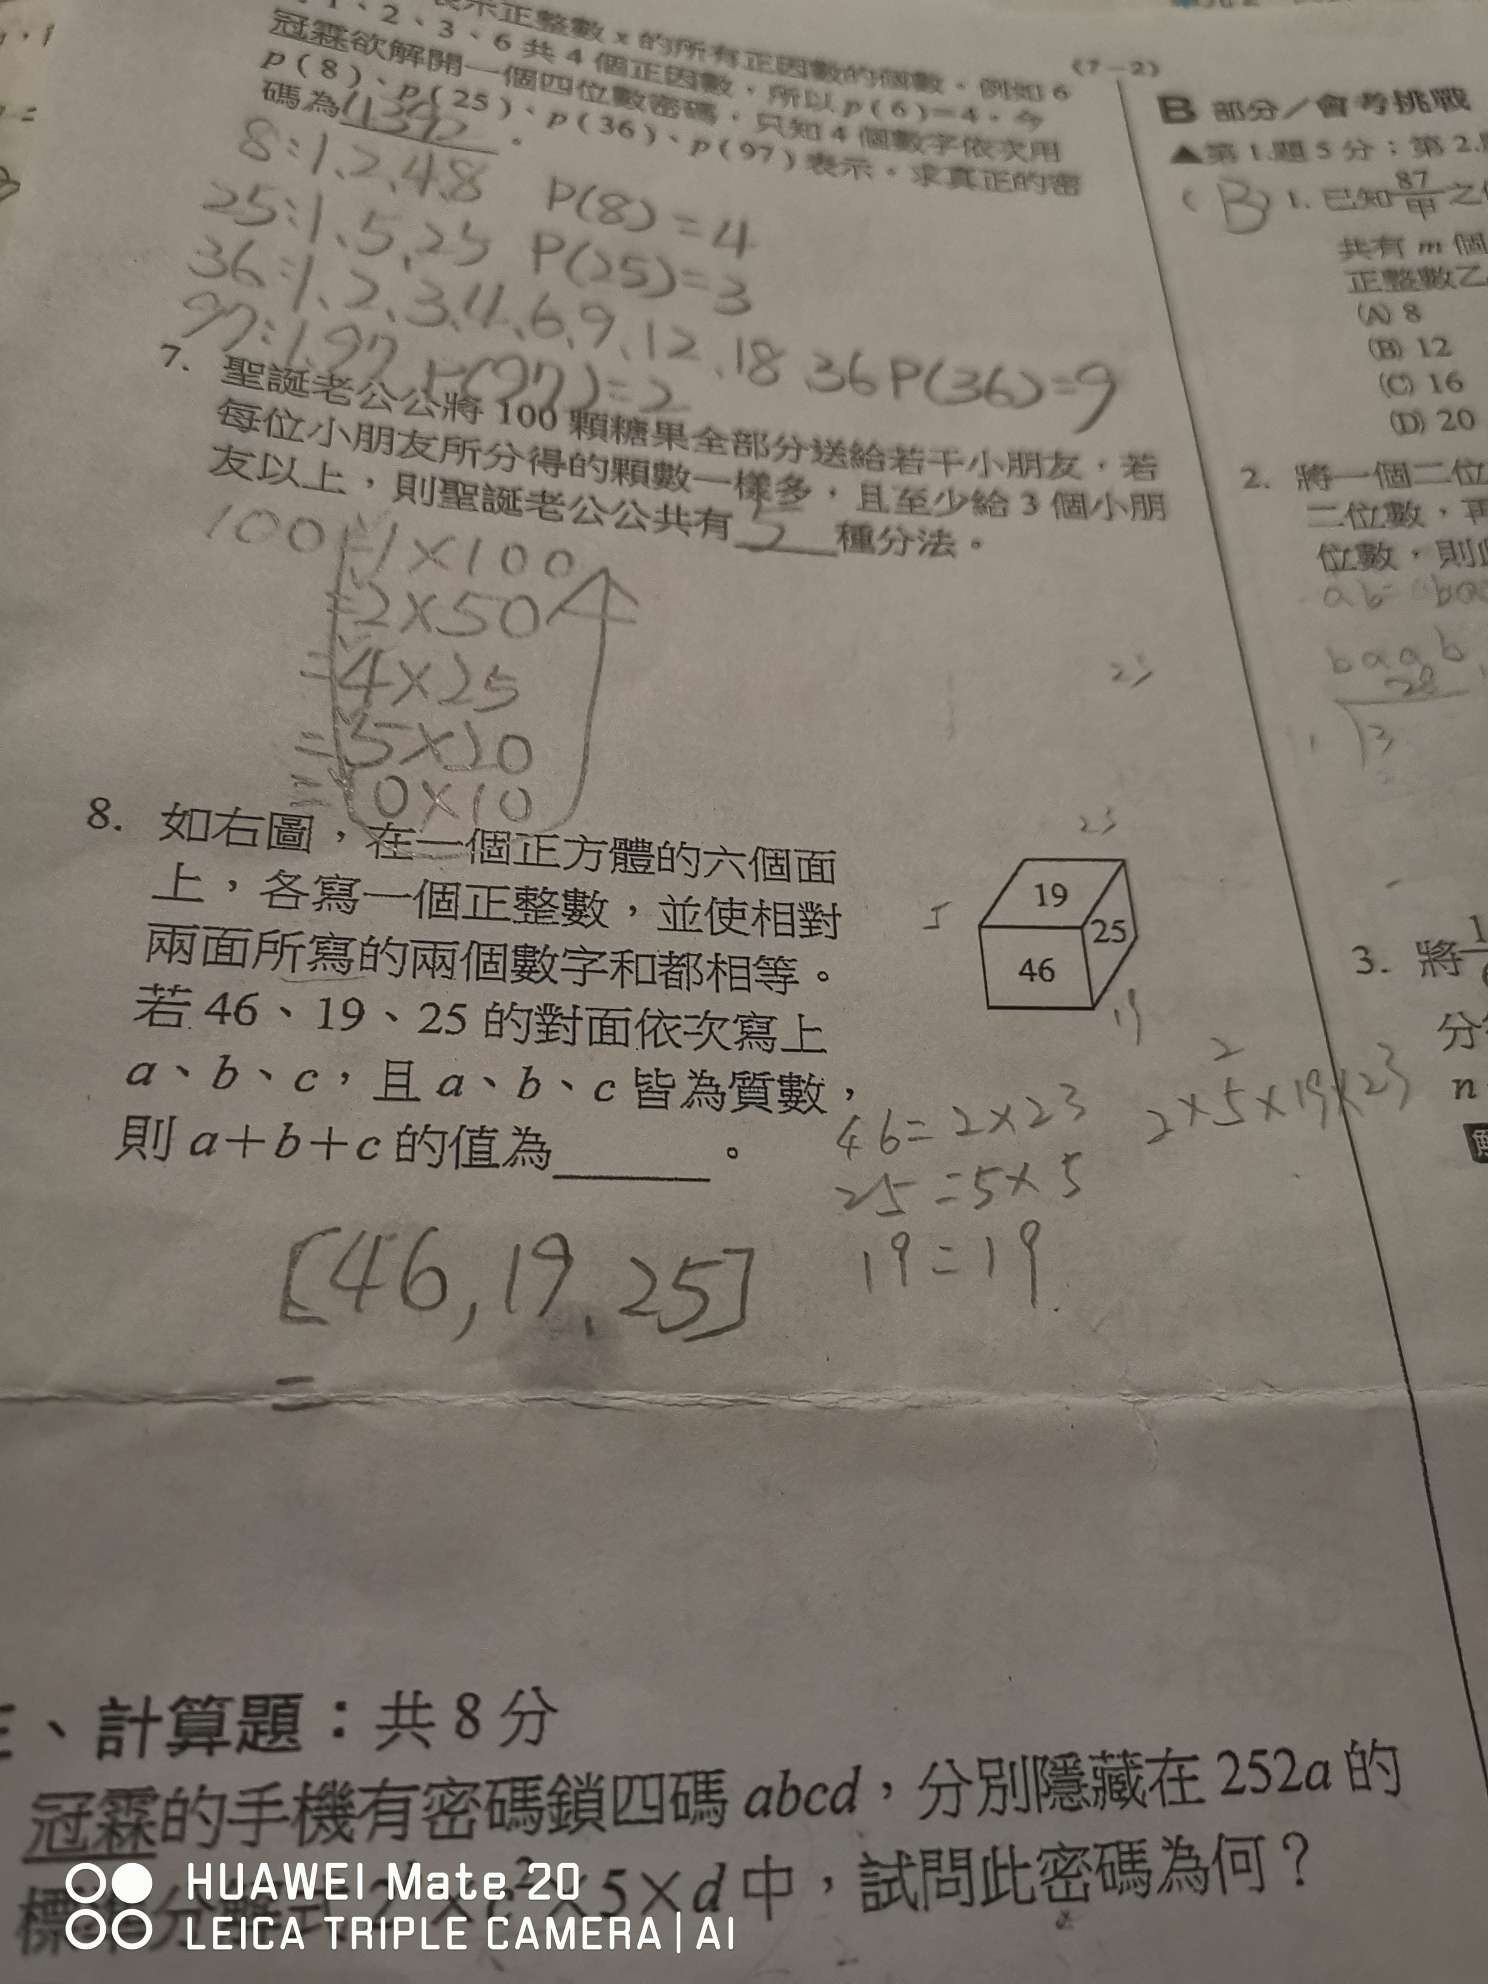 表示正整數 x 的所有正因數的個數。例如 6
1、2、3、6 共 4 個正因數,所以 p(6)=4。今
冠霖欲解開一個四位數密碼,只知 4 個數字依次用
p(8)、p(25)、p(36)、p(97)表示。求真正的密
碼為 4392 。
8:1、2、4、8 P(8)=4
25:1、5、25 P(25)=3
36:1、2、3、4、6、9、12、18、36 P(36)=9
97:1、97 P(97)=2
7. 聖誕老公公將 100 顆糖果全部分送給若干小朋友,若
每位小朋友所分得的顆數一樣多,且至少給 3 個小朋
友以上,則聖誕老公公共有 種分法。
100=1×100
=2×50
=4×25
=5×20
=10×10
8. 如右圖,在一個正方體的六個面
上,各寫一個正整數,並使相對
兩面所寫的兩個數字和都相等。
若 46、19、25 的對面依次寫上
a、b、c,且 a、b、c 皆為質數,
則 a+b+c 的值為 。
23
23
19
25
46
5
19
46=2×23
25=5×5
19=19
2×5²×19×23
[46,19,25]
=
三、計算題:共 8 分
冠霖的手機有密碼鎖四碼 abcd,分別隱藏在 252a 的
×5×d 中,試問此密碼為何?
(7-2)
B 部分/會考挑戰
▲第 1.題 5 分;第 2.
(B) 1. 已知 87/甲 之
共有 m 個
正整數乙
(A) 8
(B) 12
(C) 16
(D) 20
2. 將一個二位
二位數,再
位數,則
baab
3. 將
分
n
HUAWEI Mate 20
LEICA TRIPLE CAMERA | AI